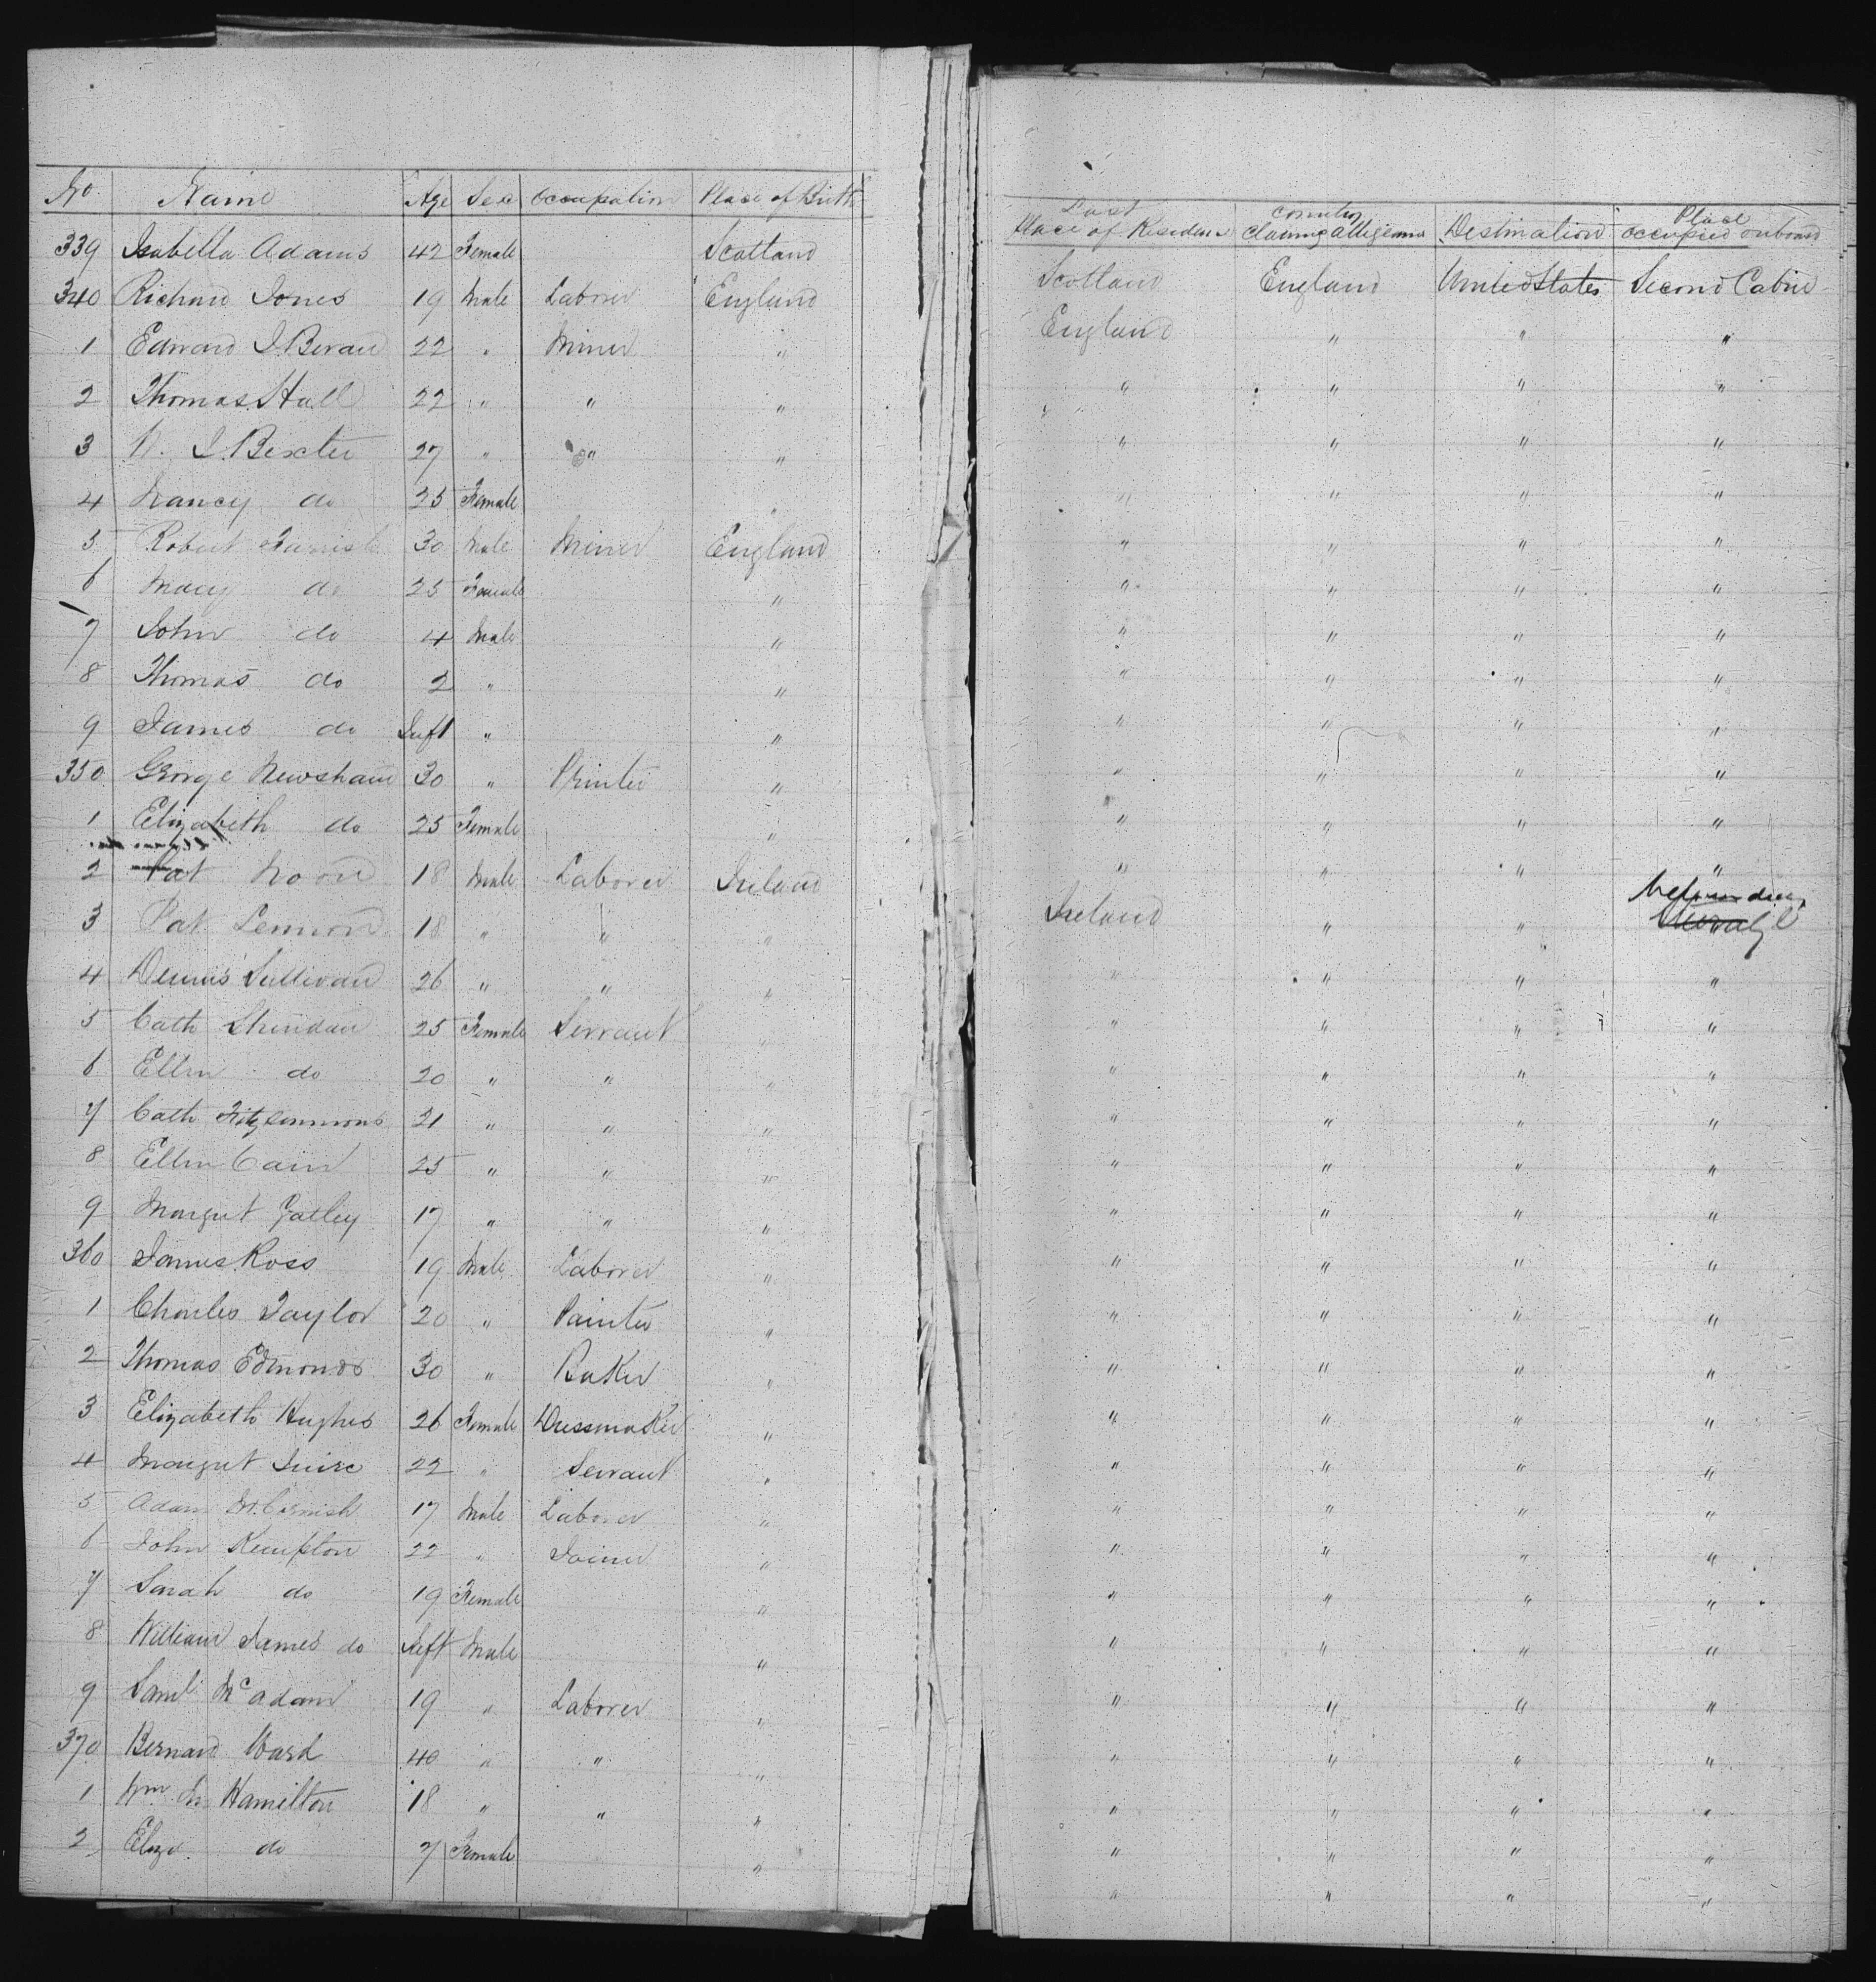 No Name Age Sex Occupation Place of Birth
339 Isabella Adams 42 Female Scotland
340 Richard Jones 19 Male Laborer England
1 Edward J. Bevan 22 " Miner "
2 Thomas Hall 22 " " "
3 J. Bexter 27 " " "
4 Nancy do 25 Female "
5 Robert 30 Male Miner England
6 Mary do 25 Female "
7 John do 4 Male "
8 Thomas do 2 " "
9 James do Inft " "
350 George Newsham 30 " Printer "
1 Elizabeth do 25 Female "
2 Pat Noon 18 Male Laborer Ireland
3 Pat Lennon 18 " " "
4 Dennis Sullivan 26 " " "
5 Cath Sheridan 25 Female Servant "
6 Ellen do 20 " " "
7 Cath Fitzsimmons 21 " " "
8 Ellen Cain 25 " " "
9 Margret 17 " " "
360 James Ross 19 Male Laborer "
1 Charles Taylor 20 " Painter "
2 Thomas Edmonds 30 " Baker "
3 Elizabeth Hughes 26 Female Dressmaker "
4 Margret 22 " Servant "
5 Adam 17 Male Laborer "
6 John Kempton 22 " Joiner "
7 Sarah do 19 Female "
8 William James do Inft Male "
9 Saml McAdam 19 " Laborer "
370 Bernard Ward 40 " " "
1 Wm Hamilton 18 " " "
2 Eliza do 7 Female "
Last Place of Residence Country Claiming Allegiance Destination Place occupied onboard
Scotland England United States Second Cabin
England " " "
" " " "
" " " "
" " " "
" " " "
" " " "
" " " "
" " " "
" " " "
" " " "
" " " "
" " " "
Ireland " "
" " " "
" " " "
" " " "
" " " "
" " " "
" " " "
" " " "
" " " "
" " " "
" " " "
" " " "
" " " "
" " " "
" " " "
" " " "
" " " "
" " " "
" " " "
" " " "
" " " "